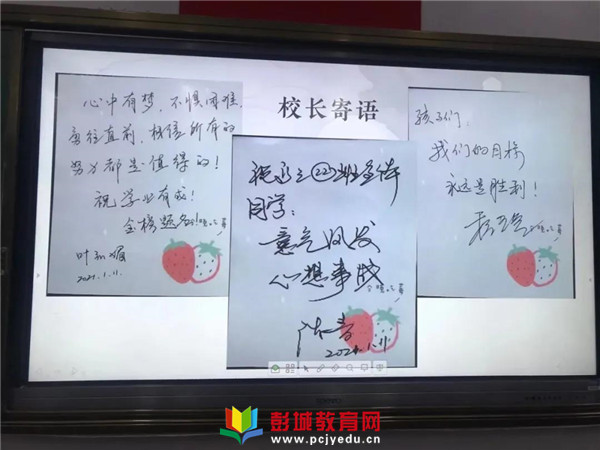 校长寄语
心中有梦，不惧困难，
勇往直前，相信所有的
努力都是值得的！
祝学业有成！
金榜题名！
2021.1.11.
祝高三(22)班全体
同学：
意气风发
心想事成
2021.1.11
孩子们，
我们的目标
永远是胜利！
彭城教育网
www.pcjyedu.cn